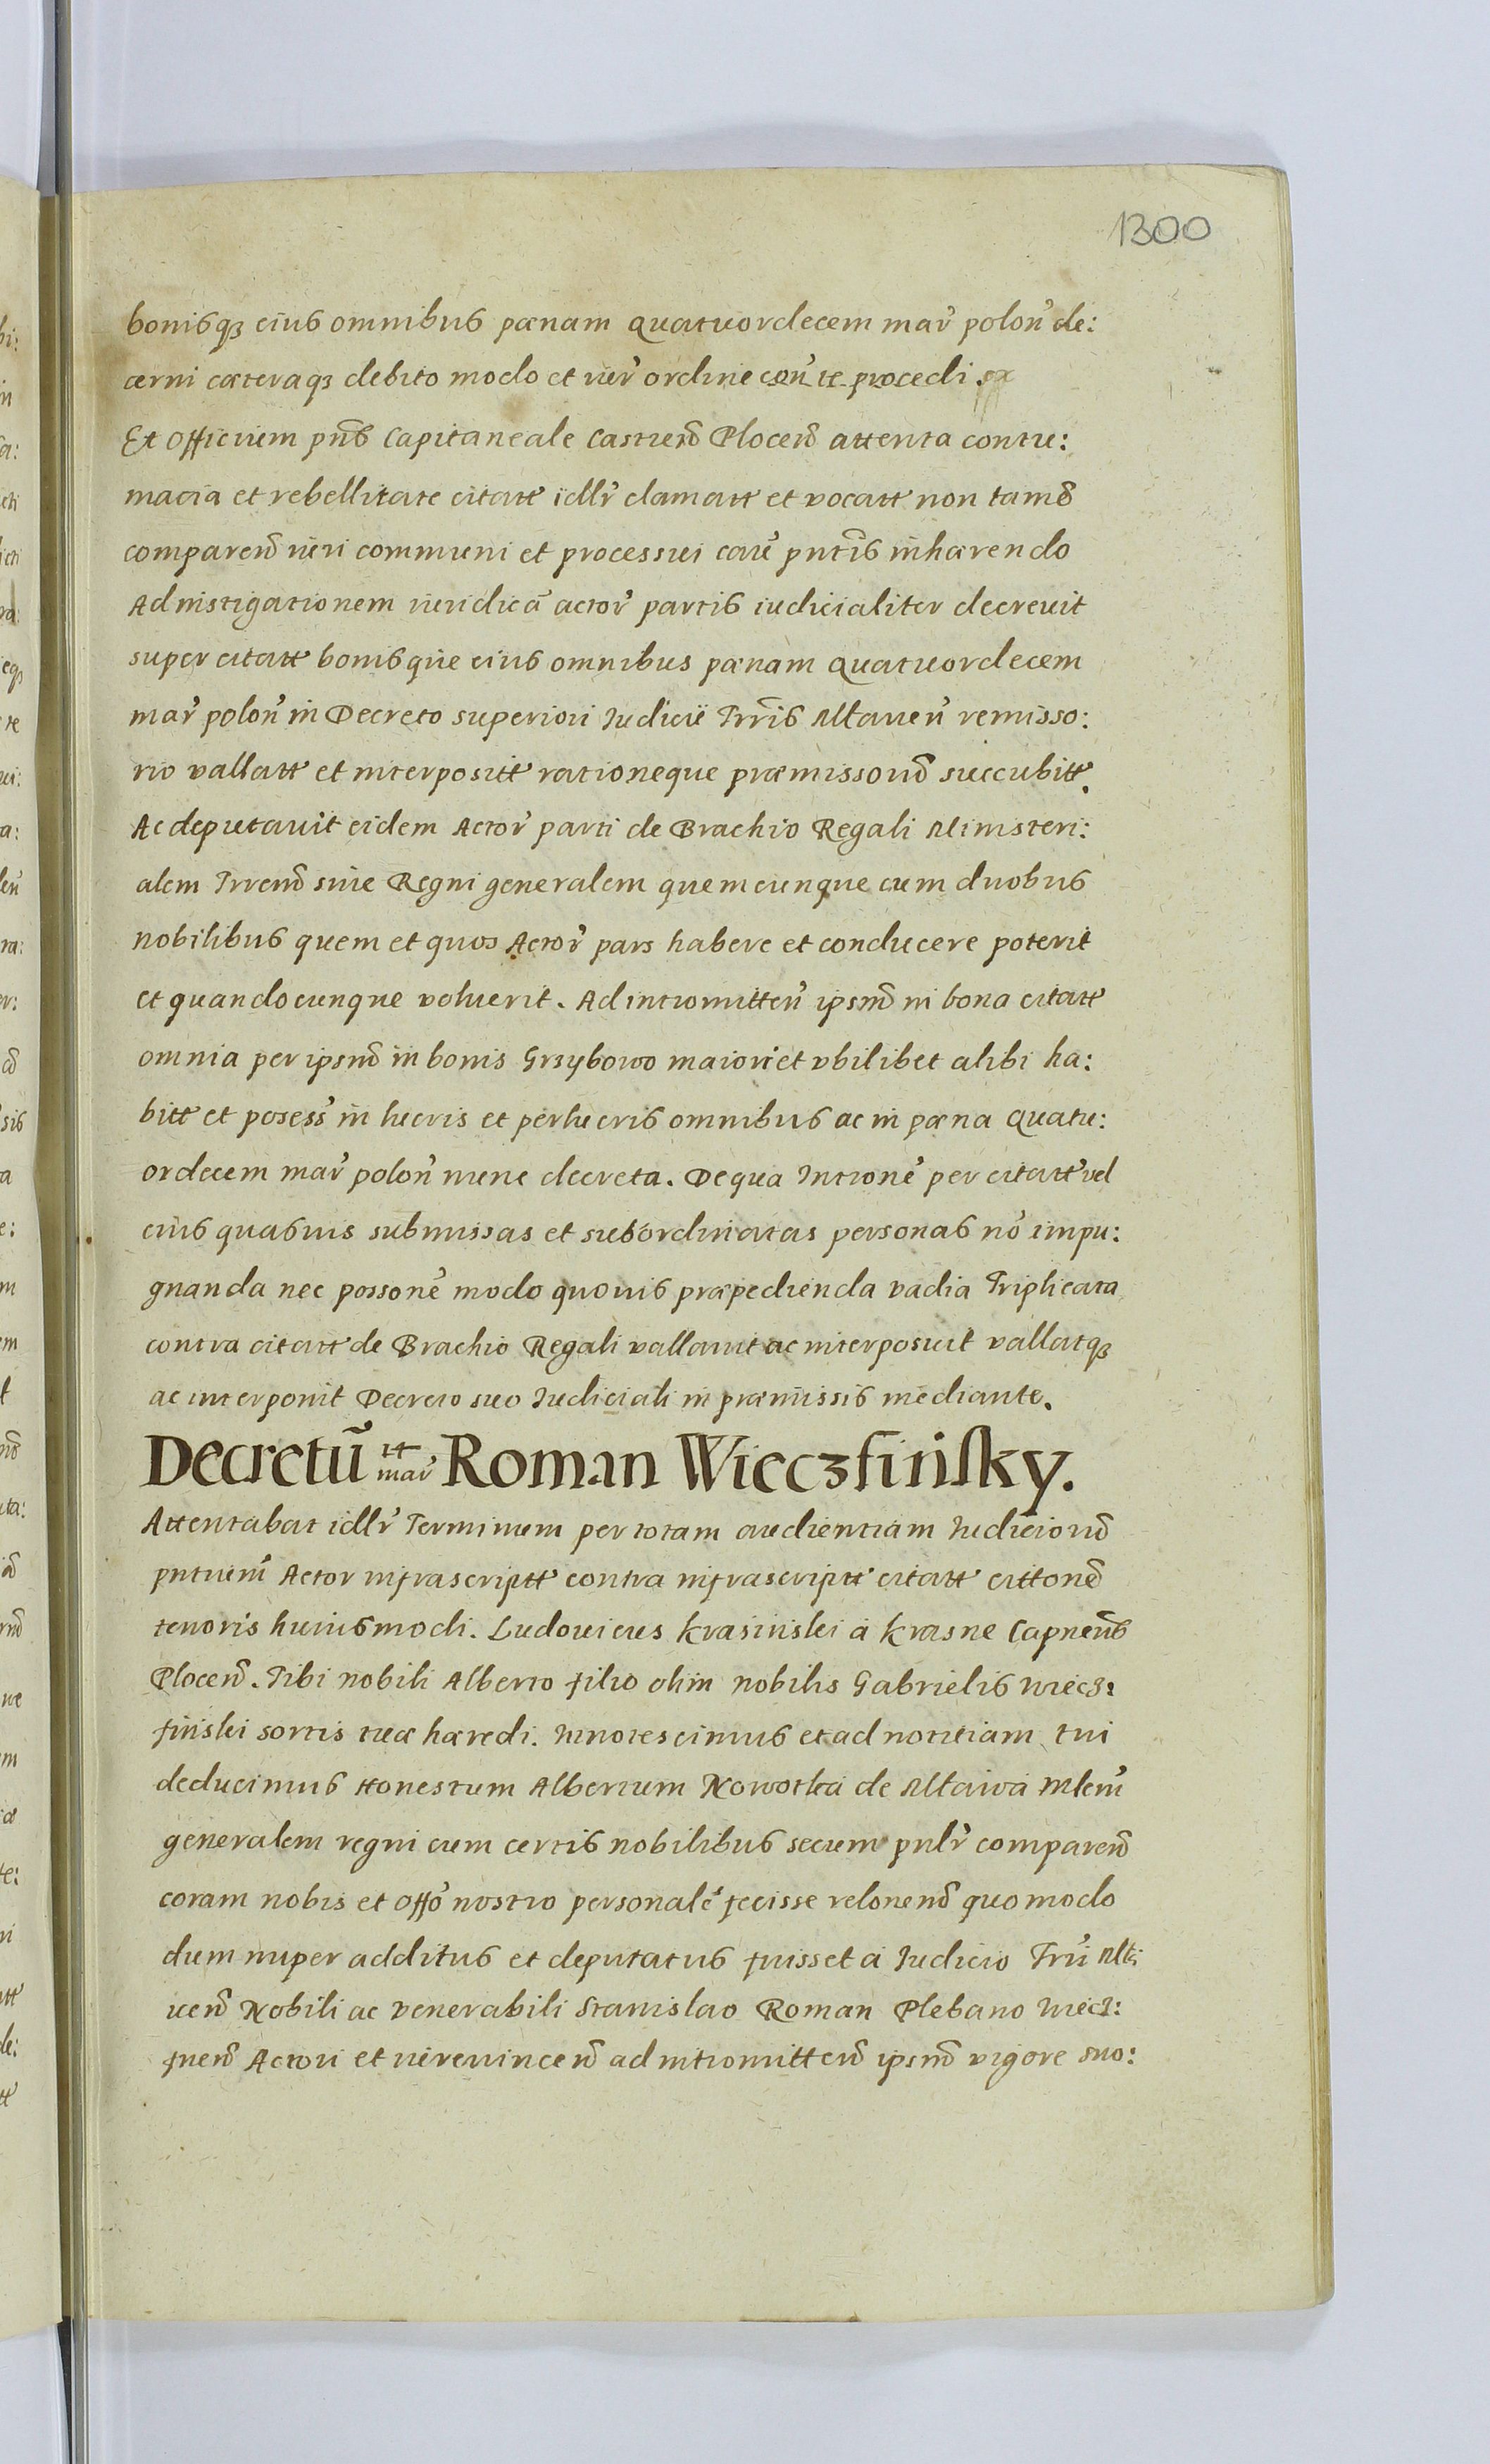 1300
bonisq3 eius omnibus pænam quatuordecem mar̃ polon̄ de:
cerni cæteraq3 debito modo et iur̃ ordine con̄ te procedi.
Et Officium pn̄s Capitaneale Castren̄ Plocen̄ attenta contu:
macia et rebellitate citatt̃ idlr̃ clamatt̃ et vocatt̃ non tam̃
comparen̄ iuri communi et processui cau͂ pn̄tis inhærendo
Ad instigationem iuridicā actor̃ partis iudicialiter decreuit
super citatt̃ bonisque eius omnibus pænam quatuordecem
mar̃ polon̄ in Decreto superiori Iudicij Trr̄is Mlauen̄ remisso:
rio vallatt̃ et interpositt̃ rationeque præmissorū succubitt̃.
Ac deputauit eidem Actor̃ parti de Brachio Regali Ministeri:
alem Trren̄ siue Regni generalem quemcunque cum duobus
nobilibus quem et quos Actor̃ pars habere et conducere poterit
et quandocunque voluerit. Ad intromitten̄ ipsm̄ in bona citatt̃
omnia per ipsm̄ in bonis Grzybowo maiori et vbilibet alibi ha:
bitt̃ et posess̃ in lucris et perlucris omnibus ac in pæna quatu:
ordecem mar̃ polon̄ nunc decreta. De qua Intrōne͂ per citatt̃ vel
eius quasuis submissas et subordinatas personas nō impu:
gnanda nec possone͂ modo quouis præpedienda vadia Triplicata
contra citatt̃ de Brachio Regali vallauit ac interposuit vallatq3
ac interponit Decreto suo Iudiciali in præmissis mediante.
Decretū tt̃ mar̃ Roman Wieczfińsky.
Attentabat idlr̃ Terminum per totam audientiam Iudiciorū
pn̄tium̄ Actor infrascriptt̃ contra infrascriptt̃ citatt̃ cittone͂
tenoris huiusmodi. Ludouicus Krasiński à Krasne Capnen̄s
Plocen̄. Tibi nobili Alberto filio olim nobilis Gabrielis Wiecz:
fiński sortis tuæ hæredi. Innotescimus et ad notitiam tui
deducimus Honestum Albertum Nowotka de Mława Mlem̄
generalem regni cum certis nobilibus secum pnlr̃ comparen̄
coram nobis et Offō nostro personalr̃ fecisse relonem̄ quomodo
dum nuper additus et deputatus fuisset à Iudicio Trri̇̃ Mła:
uen̄ Nobili ac venerabili Stanislao Roman Plebano Wiecz:
fnen̄ Actori et iúreuincen̄ ad intromitten̄ ipsm̄ vigore suo: